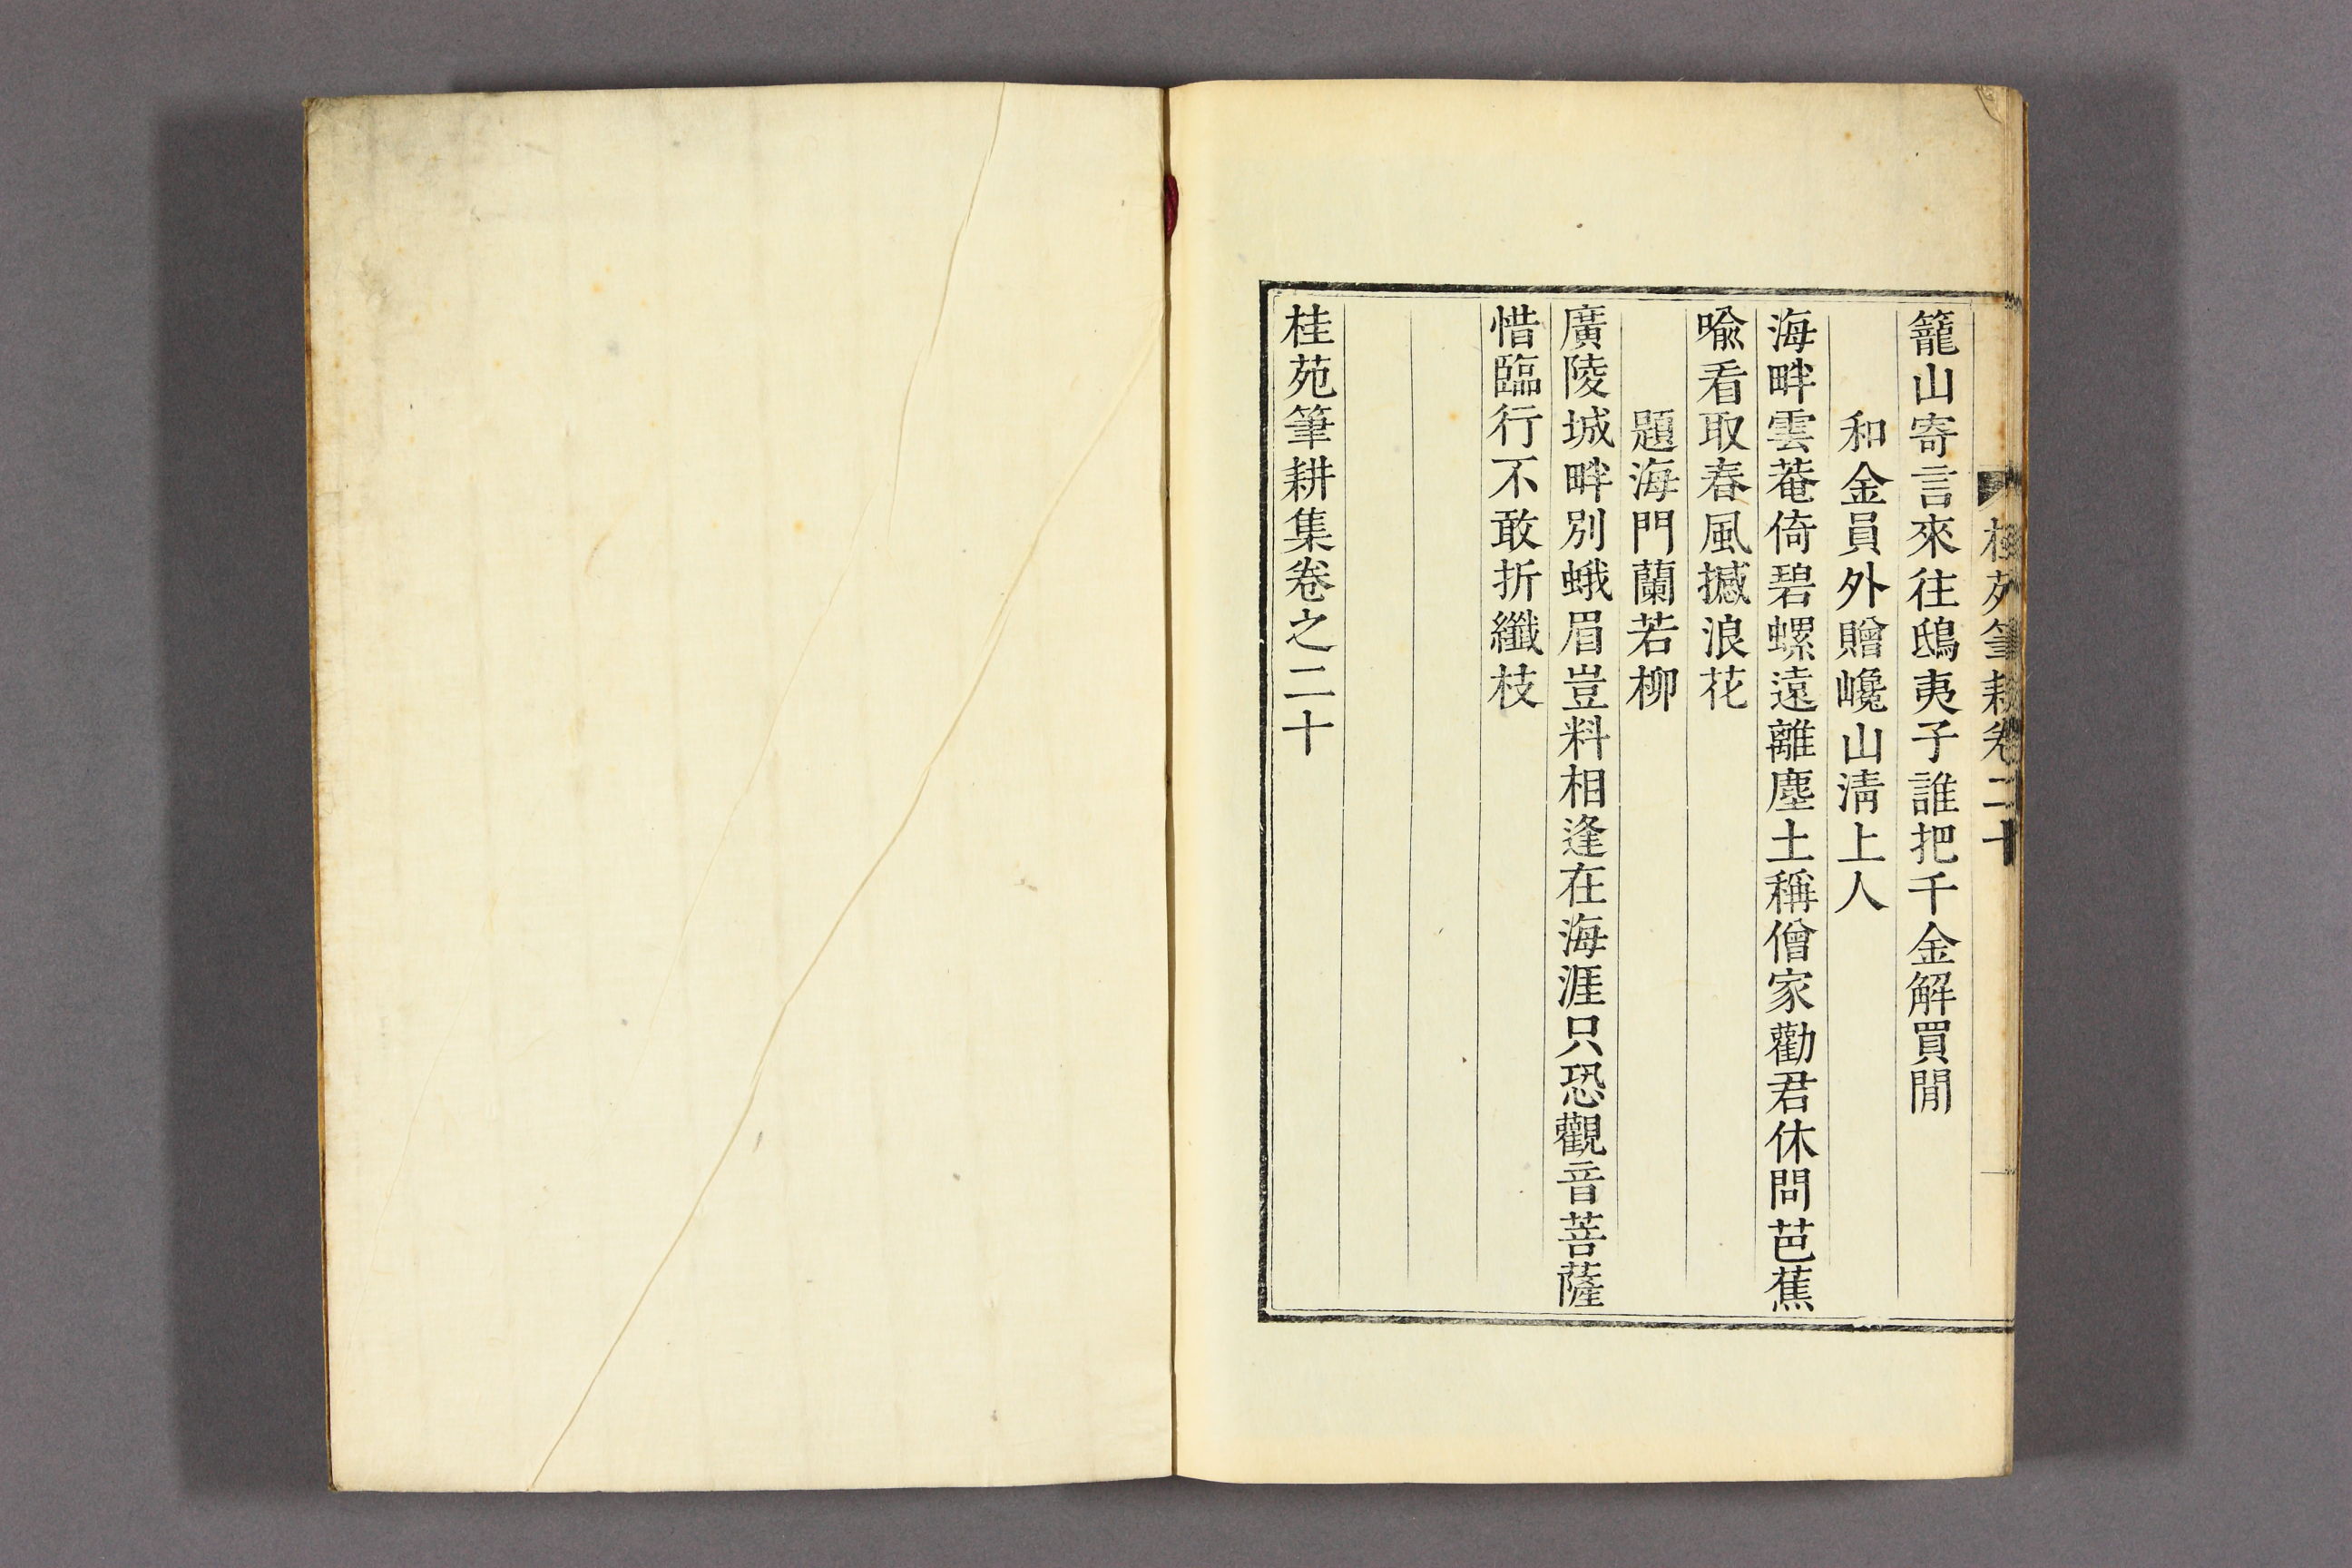 桂苑筆耕卷二十
籠山寄言來往鴟夷子誰把千金解買閒
和金員外贈巉山淸上人
海畔雲菴倚碧螺遠離塵土稱僧家勸君休問芭蕉
喩看取春風撼浪花
題海門蘭若柳
廣陵城畔別蛾眉豈料相逢在海涯只恐觀音菩薩
惜臨行不敢折纖枝
桂苑筆耕集卷之二十